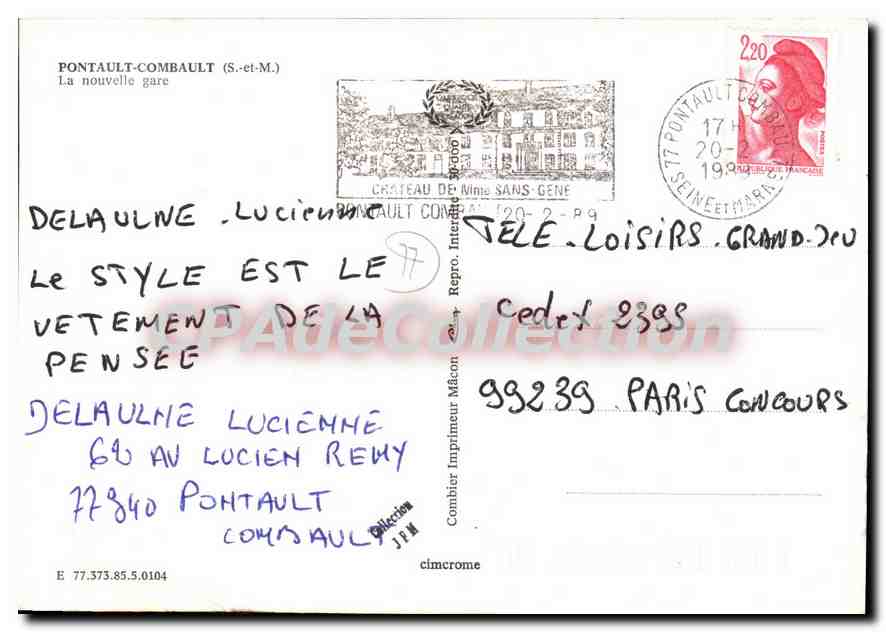 PONTAULT-COMBAULT (S.-et-M.)
La nouvelle gare
CHATEAU DE Mme SANS-GENE
PONTAULT COMBAULT 20-2-89
77 PONTAULT COMBAULT
17 H
20-2
1989
SEINE ET MARNE
2,20
POSTES
REPUBLIQUE FRANÇAISE
DELAULNE . Lucienne
Le STYLE EST LE
VETEMENT DE LA
PENSEE
DELAULNE LUCIENNE
AV LUCIEN REMY
77340 PONTAULT
COMBAULT
77
TELE-LOISIRS. GRAND-JEU
Cedex 2395
99239 PARIS CONCOURS
Combier Imprimeur Mâcon Repro. Interdite 30-000
Collection
JFM
cimcrome
E 77.373.85.5.0104
CPAdeCollection